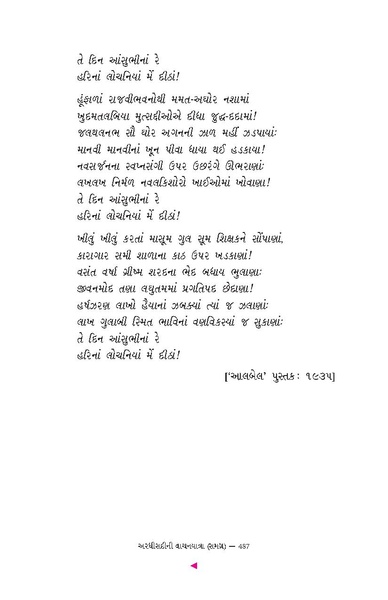 તે દિન આંસુભીનાં રે
હરિનાં લોચનિયાં મેં દીઠાં!
હૂંફાળાં રાજવીભવનોથી મમત-અઘોર નશામાં
ખુદમતલબિયા મુત્સદ્દીઓએ દીધા જુદ્ધ-દદામાં!
જલથલનભ સૌ ઘોર અગનની ઝાળ મહીં ઝડપાયાંઃ
માનવી માનવીનાં ખૂન પીવા ધાયા થઈ હડકાયા!
નવસર્જનના સ્વપ્નસંગી ઉપર ઉછરંગે ઊભરાણાંઃ
લખલખ નિર્મળ નવલકિશોરો ખાઈઓમાં ખોવાણા!
તે દિન આંસુભીનાં રે
હરિનાં લોચનિયાં મેં દીઠાં!
ખીલું ખીલું કરતાં માસૂમ ગુલ સૂમ શિક્ષકને સોંપાણાં,
કારાગાર સમી શાળાના કાઠ ઉપર ખડકાણાં!
વસંત વર્ષા ગ્રીષ્મ શરદના ભેદ બધાય ભુલાણાઃ
જીવનમોદ તણા લઘુતમમાં પ્રગતિપદ છેદાણા!
હર્ષઝરણ લાખો હૈયાનાં ઝબક્યાં ત્યાં જ ઝલાણાંઃ
લાખ ગુલાબી સ્મિત ભાવિનાં વણવિકસ્યાં જ સુકાણાંઃ
તે દિન આંસુભીનાં રે
હરિનાં લોચનિયાં મેં દીઠાં!
['આલબેલ' પુસ્તક: ૧૯૩૫]
અરધીસદીની વાચનયાત્રા (સમગ્ર) — 487